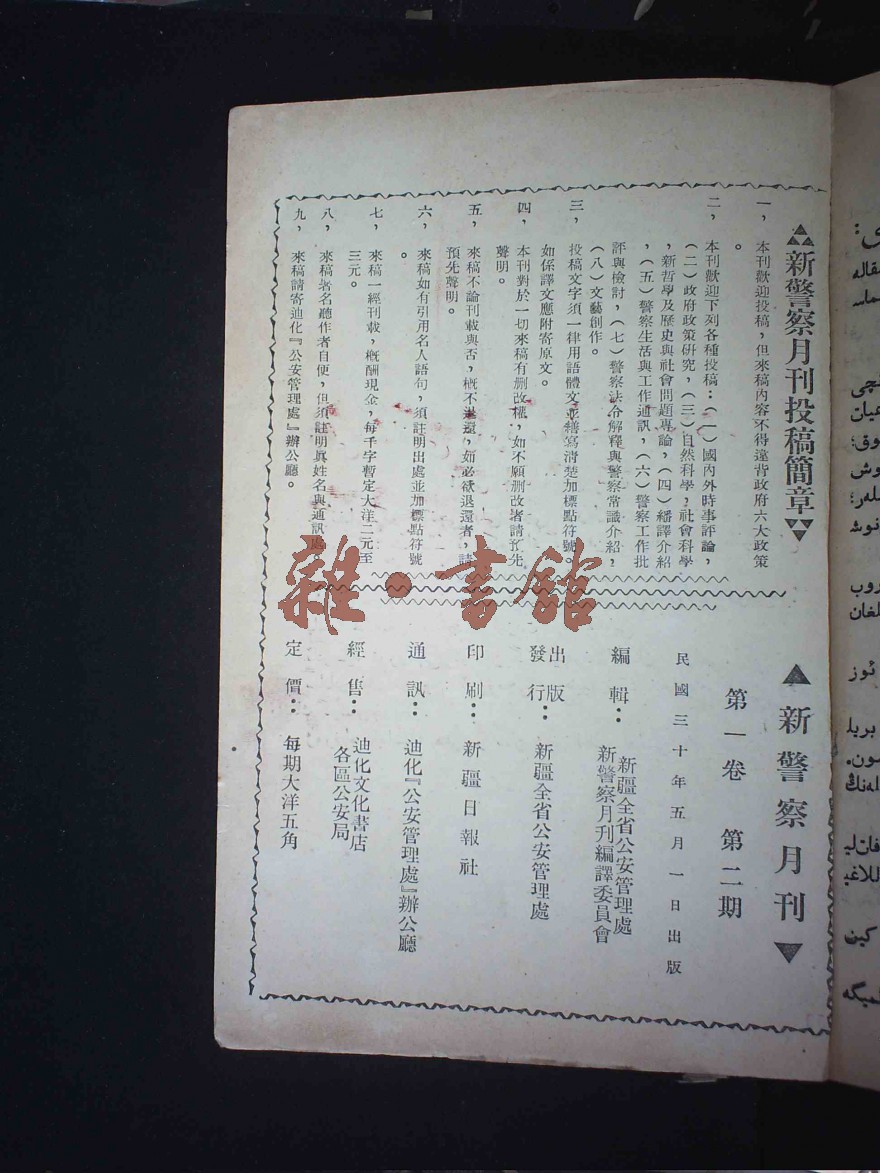 新警察月刊投稿簡章
一，本刊歡迎投稿，但來稿內容不得違背政府六大政策
。
二，本刊歡迎下列各種投稿：（一）國內外時事評論，
（二）政府政策研究，（三）自然科學，社會科學
，新哲學及歷史與社會問題專論，（四）繙譯介紹
，（五）警察生活與工作通訊，（六）警察工作批
評與檢討，（七）警察法令解釋與警察常識介紹，
（八）文藝創作。
三，投稿文字須一律用語體文並繕寫清楚加標點符號。
如係譯文應附寄原文。
四，本刊對於一切來稿有刪改權，如不願刪改者請預先
聲明。
五，來稿不論刊載與否，概不退還，如必欲退還者，請
預先聲明。
六，來稿如有引用名人語句，須註明出處並加標點符號
。
七，來稿一經刊載，概酬現金，每千字暫定大洋二元至
三元。
八，來稿署名聽作者自便，但須註明眞姓名與通訊處。
九，來稿請寄迪化『公安管理處』辦公廳。
▲新警察月刊▼
第一卷 第二期
民國三十年五月一日出版
編輯：新疆全省公安管理處
新警察月刊編譯委員會
出版
發行：新疆全省公安管理處
印刷：新疆日報社
通訊：迪化『公安管理處』辦公廳
經售：迪化文化書店
各區公安局
定價：每期大洋五角
雜·書館